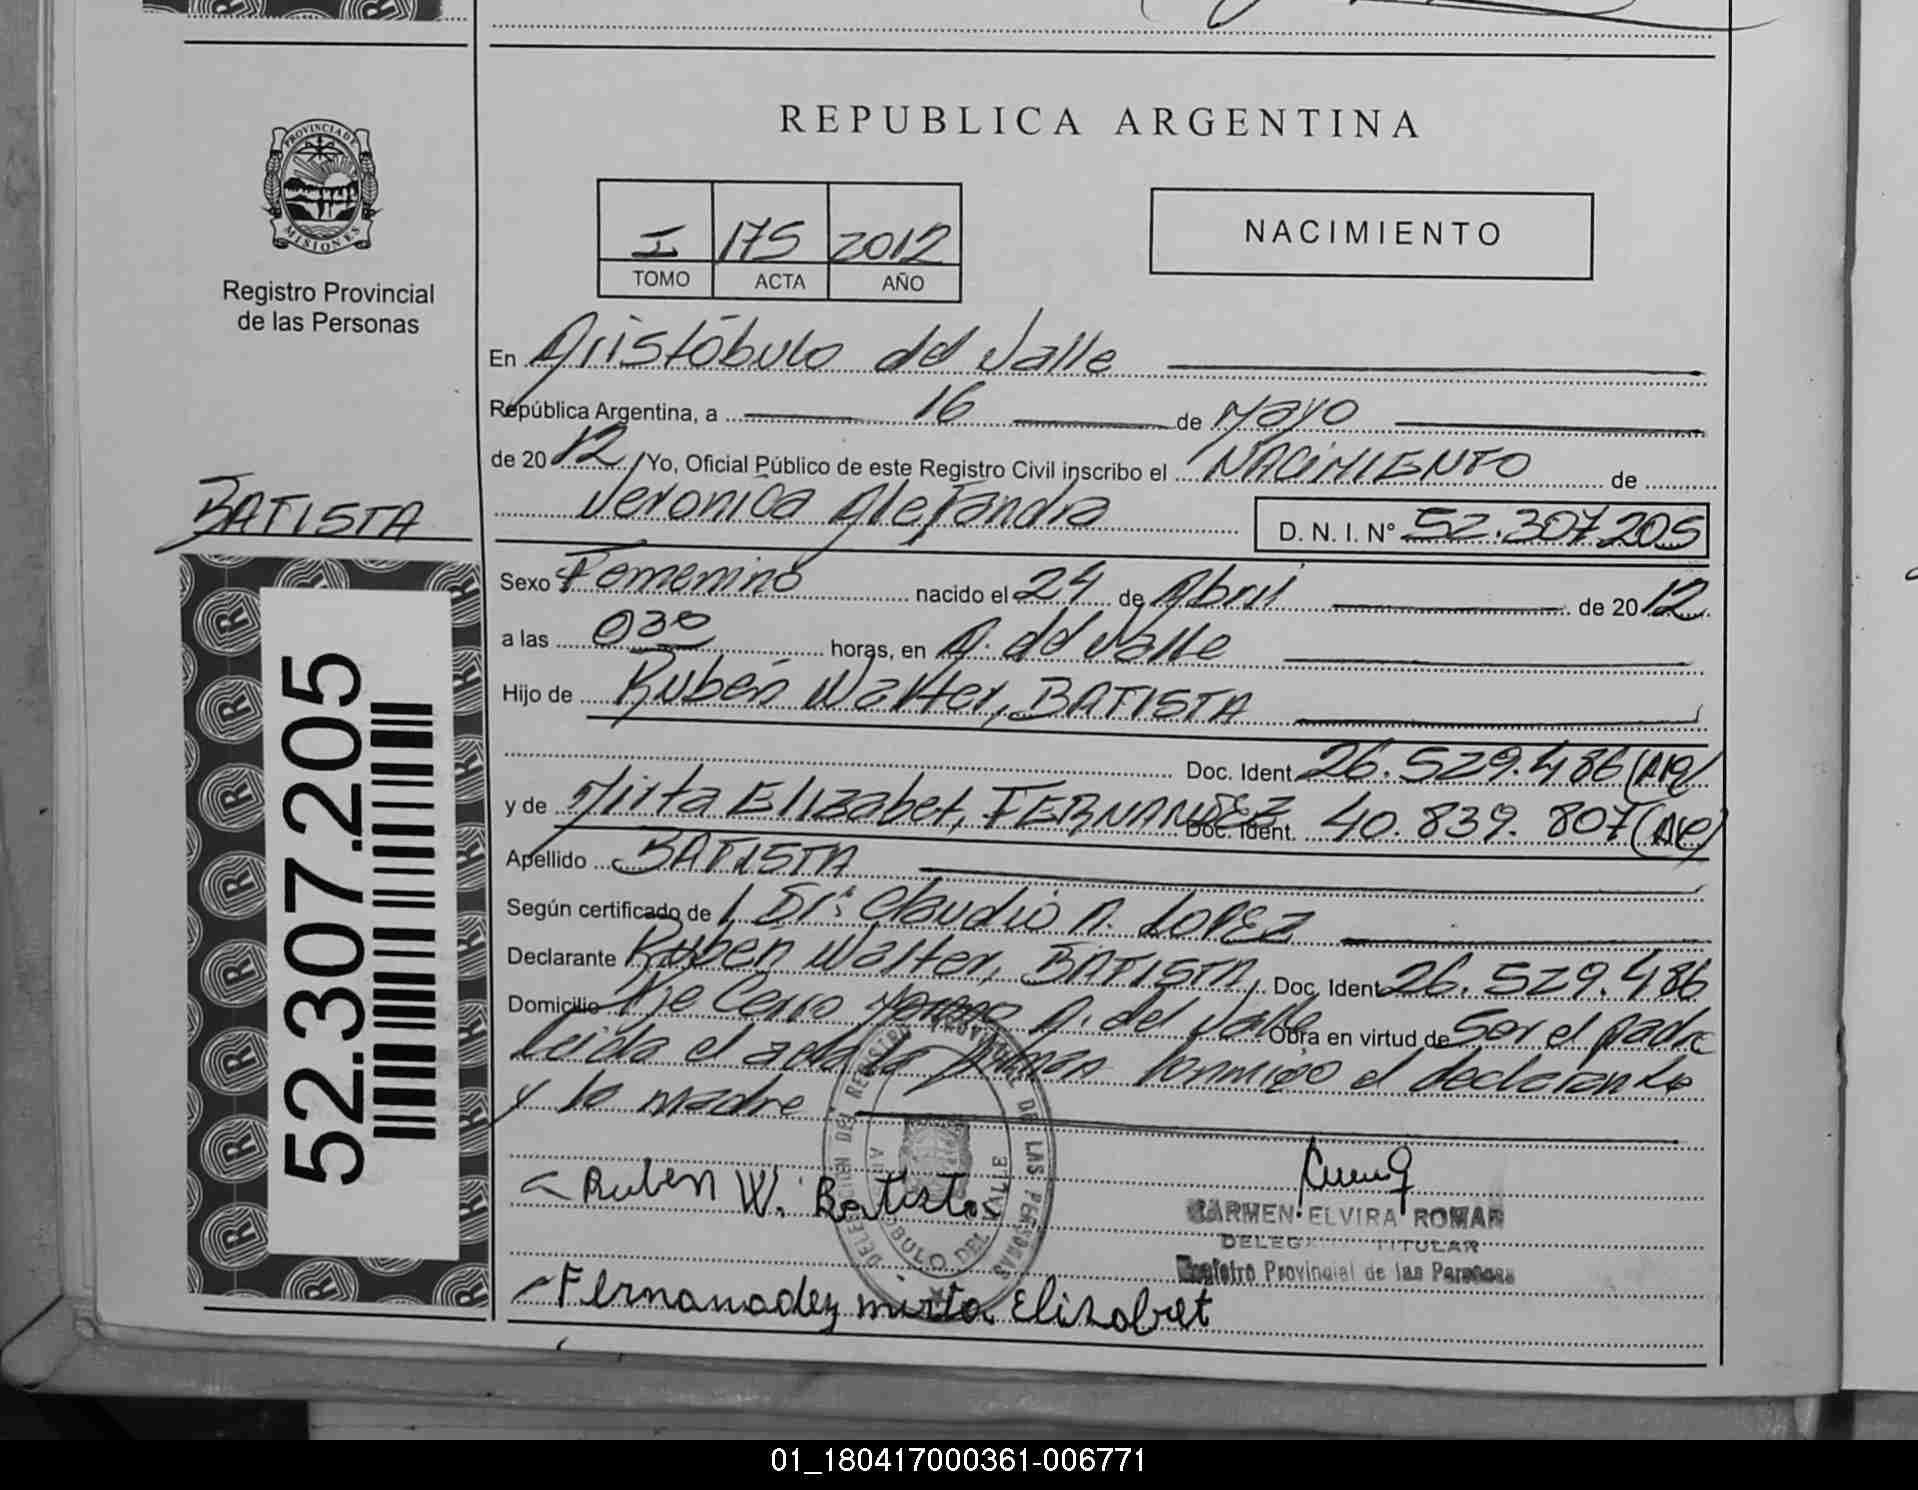 REPUBLICA ARGENTINA
PROVINCIA DE
MISIONES
Registro Provincial
de las Personas
I 175 2012
TOMO ACTA AÑO
NACIMIENTO
En Aristóbulo del Valle
República Argentina, a 16 de Mayo
de 2012 Yo, Oficial Público de este Registro Civil inscribo el NACIMIENTO de
BATISTA
Veronica Alejandra D. N. I. Nº 52.307.205
Sexo Femenino nacido el 24 de Abril de 2012
a las 030 horas, en A. del Valle
Hijo de Rubén Walter, BATISTA
Doc. Ident. 26.529.486 (Arg)
y de Mirta Elizabet, FERNANDEZ Doc. Ident. 40.839.807 (Arg)
Apellido BATISTA
Según certificado de Dr. Claudio A. LOPEZ
Declarante Rubén Walter, BATISTA Doc. Ident. 26.529.486
Domicilio Cerro A. del Valle Obra en virtud de Ser el padre
leida el acta la firman conmigo el declarante
y la madre
52.307.205
DELEGACION DEL REGISTRO PROVINCIAL DE LAS PERSONAS
ARISTOBULO DEL VALLE
Ruben W. Batista
CARMEN ELVIRA ROMAN
DELEGADA TITULAR
Registro Provincial de las Personas
Fernanadez mirta Elizabet
01_180417000361-006771